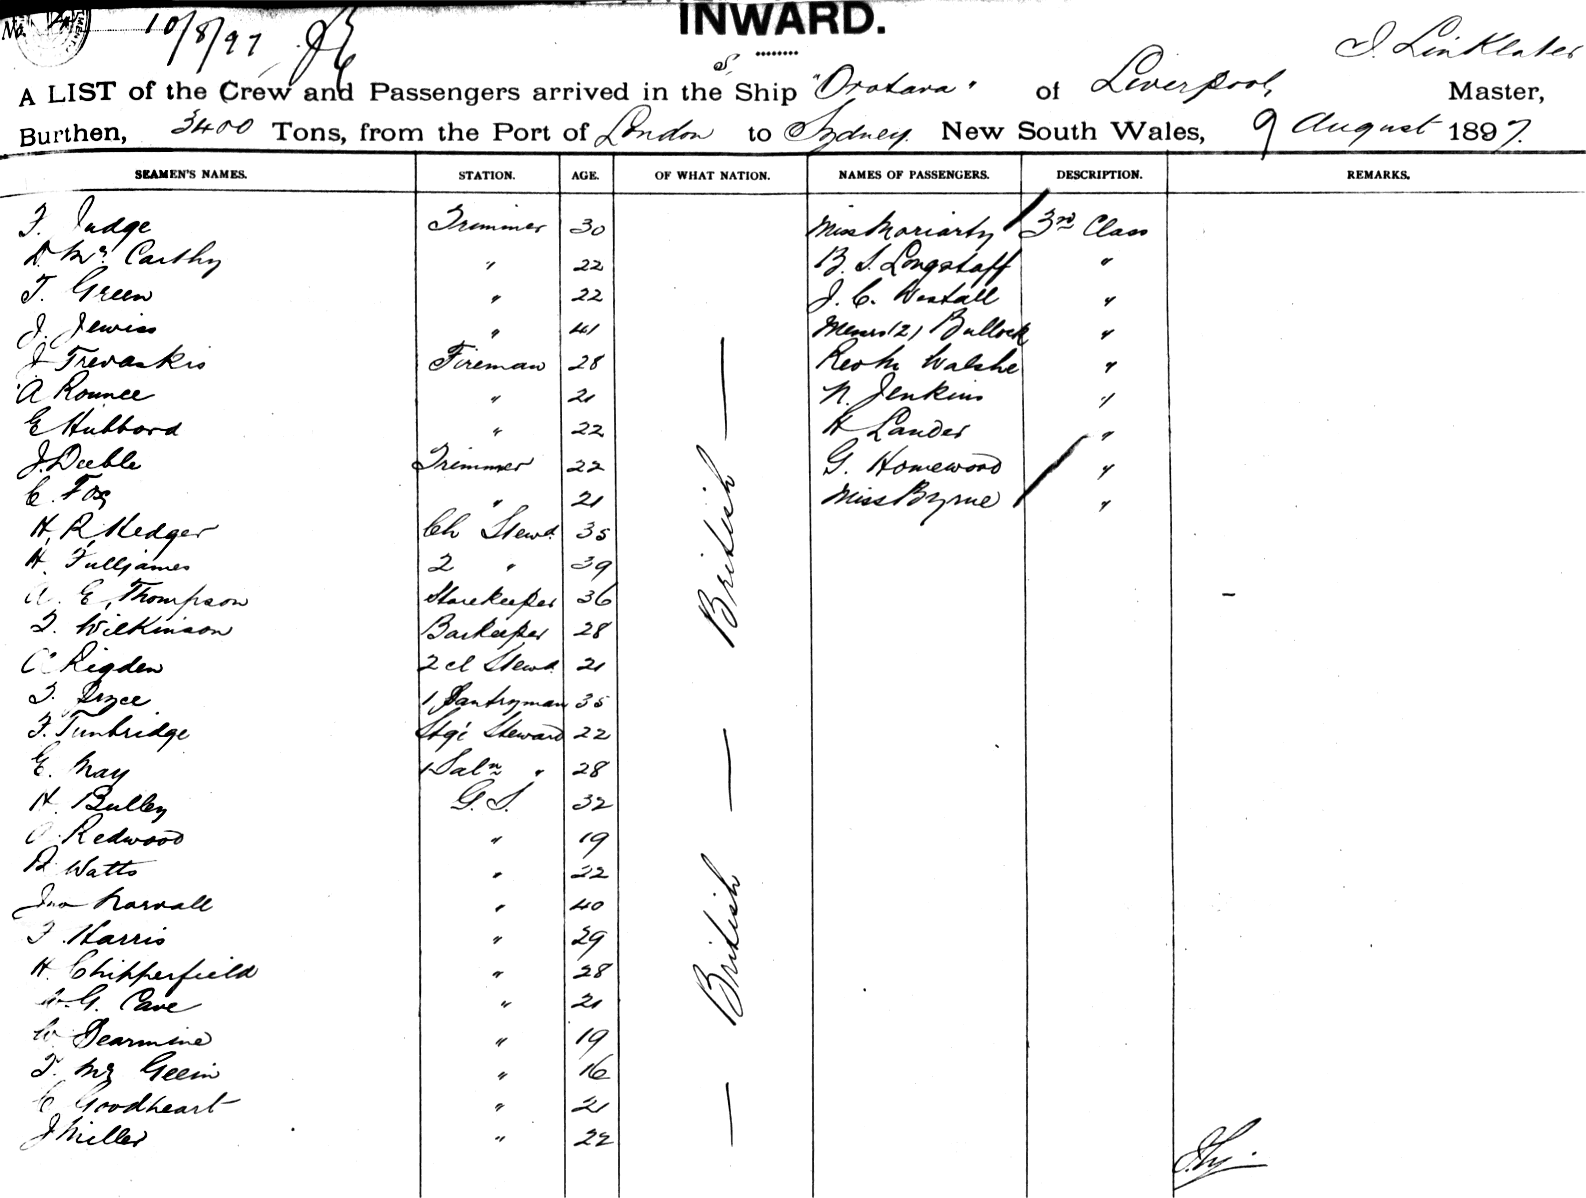 No.
10/8/97
INWARD.
J. Linklater
A LIST of the Crew and Passengers arrived in the S. Ship "Orotava" of Liverpool, Master,
Burthen, 3400 Tons, from the Port of London to Sydney. New South Wales, 9 August 1897.
SEAMEN'S NAMES. STATION. AGE. OF WHAT NATION. NAMES OF PASSENGERS. DESCRIPTION. REMARKS.
F. Judge Trimmer 30 Miss Moriarty 3rd Class
D. Mc Carthy " 22 B. S. Longstaff "
T. Green " 22 J. C. Westall "
J. Jewiss " 41 Messrs (2) Bullock "
J Trevaskis Fireman 28 Walshe "
A Rounce " 21 N. Jenkins "
E Hubbard " 22 H Lander "
J. Deeble Trimmer 22 G. Homewood "
C. Fox " 21 Miss Byrne "
H. R. Hedger Ch Stewd. 35
H. Fulljames 2 " 39
A. E. Thompson Storekeeper 36
T. Wilkinson Barkeeper 28
A Rigden 2 cl Stewd 21
T. Bryce 1 Pantryman 35
F. Tunbridge Stge Steward 22
E. May 1 Saln " 28
H. Bulley G. S. 32
A Redwood " 19
R Watts " 22
Jno Narvall " 40
F Harris " 29
H. Chipperfield " 28
W. G. Cave " 21
W Dearmine " 19
T. Mc Geein " 16
C Goodheart " 21
J Miller " 22
— British —
— British —